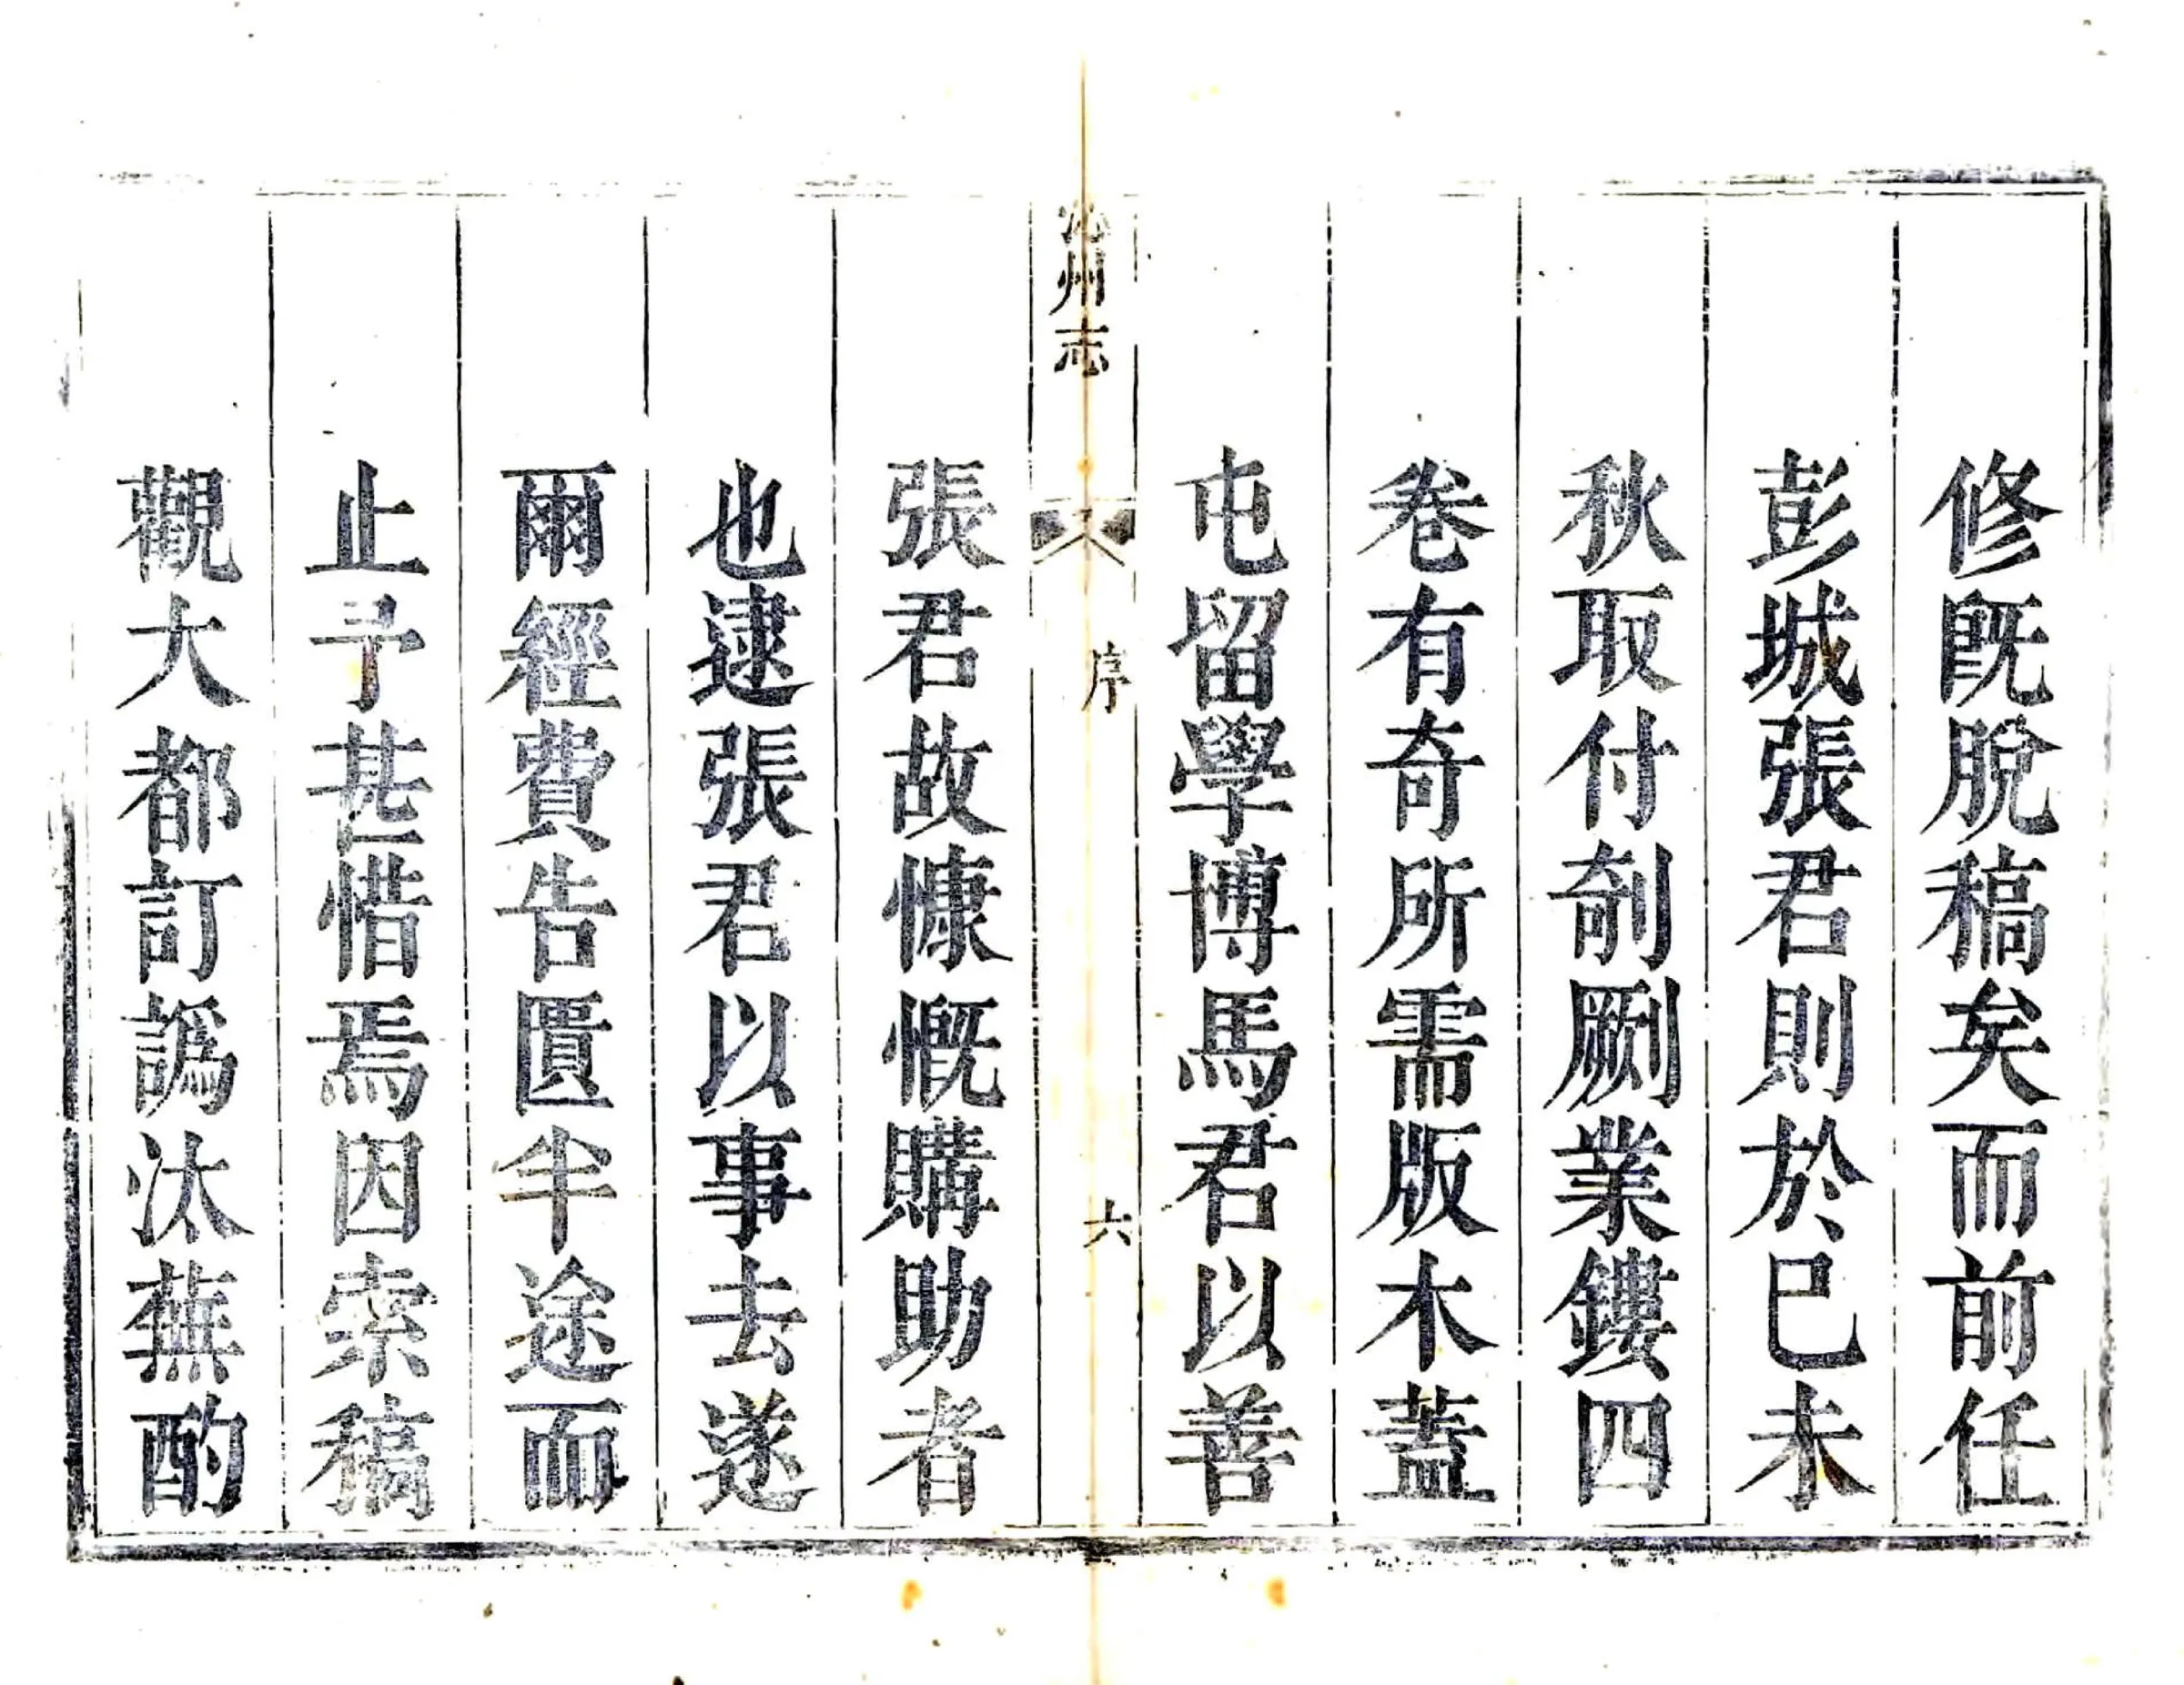 修既脫稿矣而前任
彭城張君則於巳未
秋取付剞劂業鏤四
卷有奇所需版木蓋
屯留學博馬君以善
沁州志
序
六
張君故慷慨購助者
也逮張君以事去遂
爾經費告匱半途而
止予甚惜焉因索稿
觀大都訂譌汰蕪酌